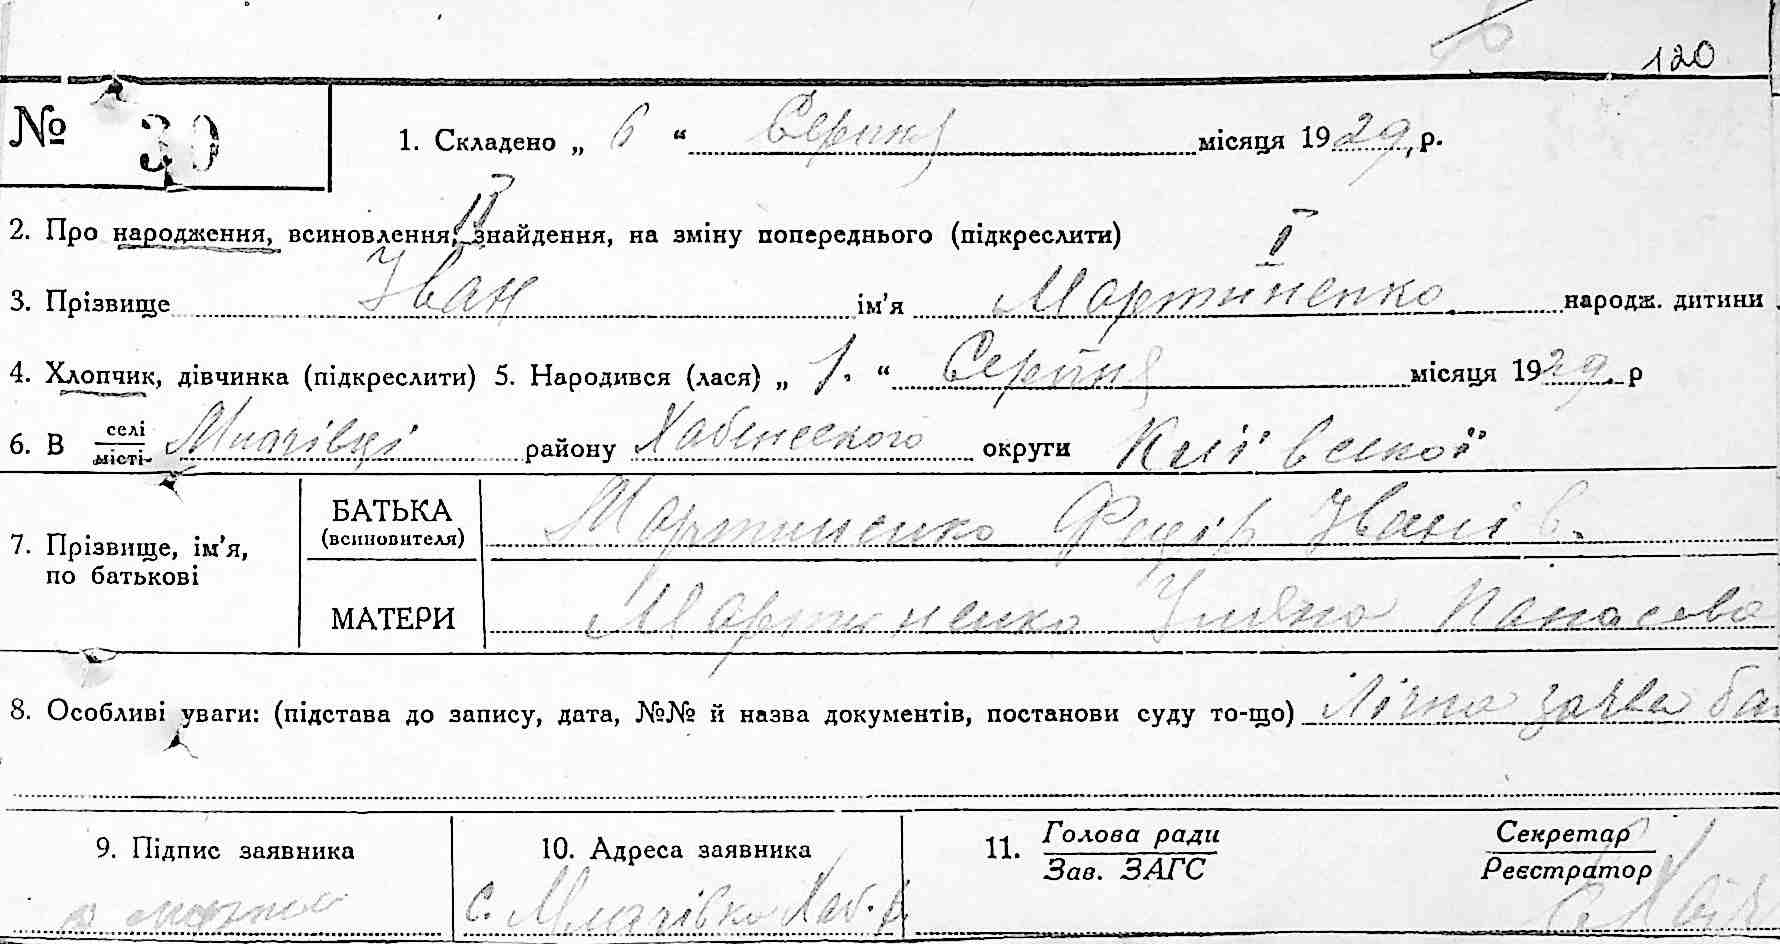 120
№ 30 1. Складено „ 6 “ Серпня місяця 1929 р.
II
2. Про народження, всиновлення, знайдення, на зміну попереднього (підкреслити) I
3. Прізвище Іван ім’я Мартиненко народж. дитини
4. Хлопчик, дівчинка (підкреслити) 5. Народився (лася) „ 1. “ Серпня місяця 1929. р
6. В селі
місті районy Хабенського округи Київської
7. Прізвище, ім’я, по батькові
БАТЬКА (всиновителя) Мартиненко Федір Іванів.
МАТЕРИ Мартиненко Уляна Панасова
8. Особливі уваги: (підстава до запису, дата, №№ й назва документів, постанови суду то-що) Лічна заява ба
9. Підпис заявника
10. Адреса заявника
с. Хаб. р.
11. Голова ради
Зав. ЗАГС
Секретар
Реєстратор